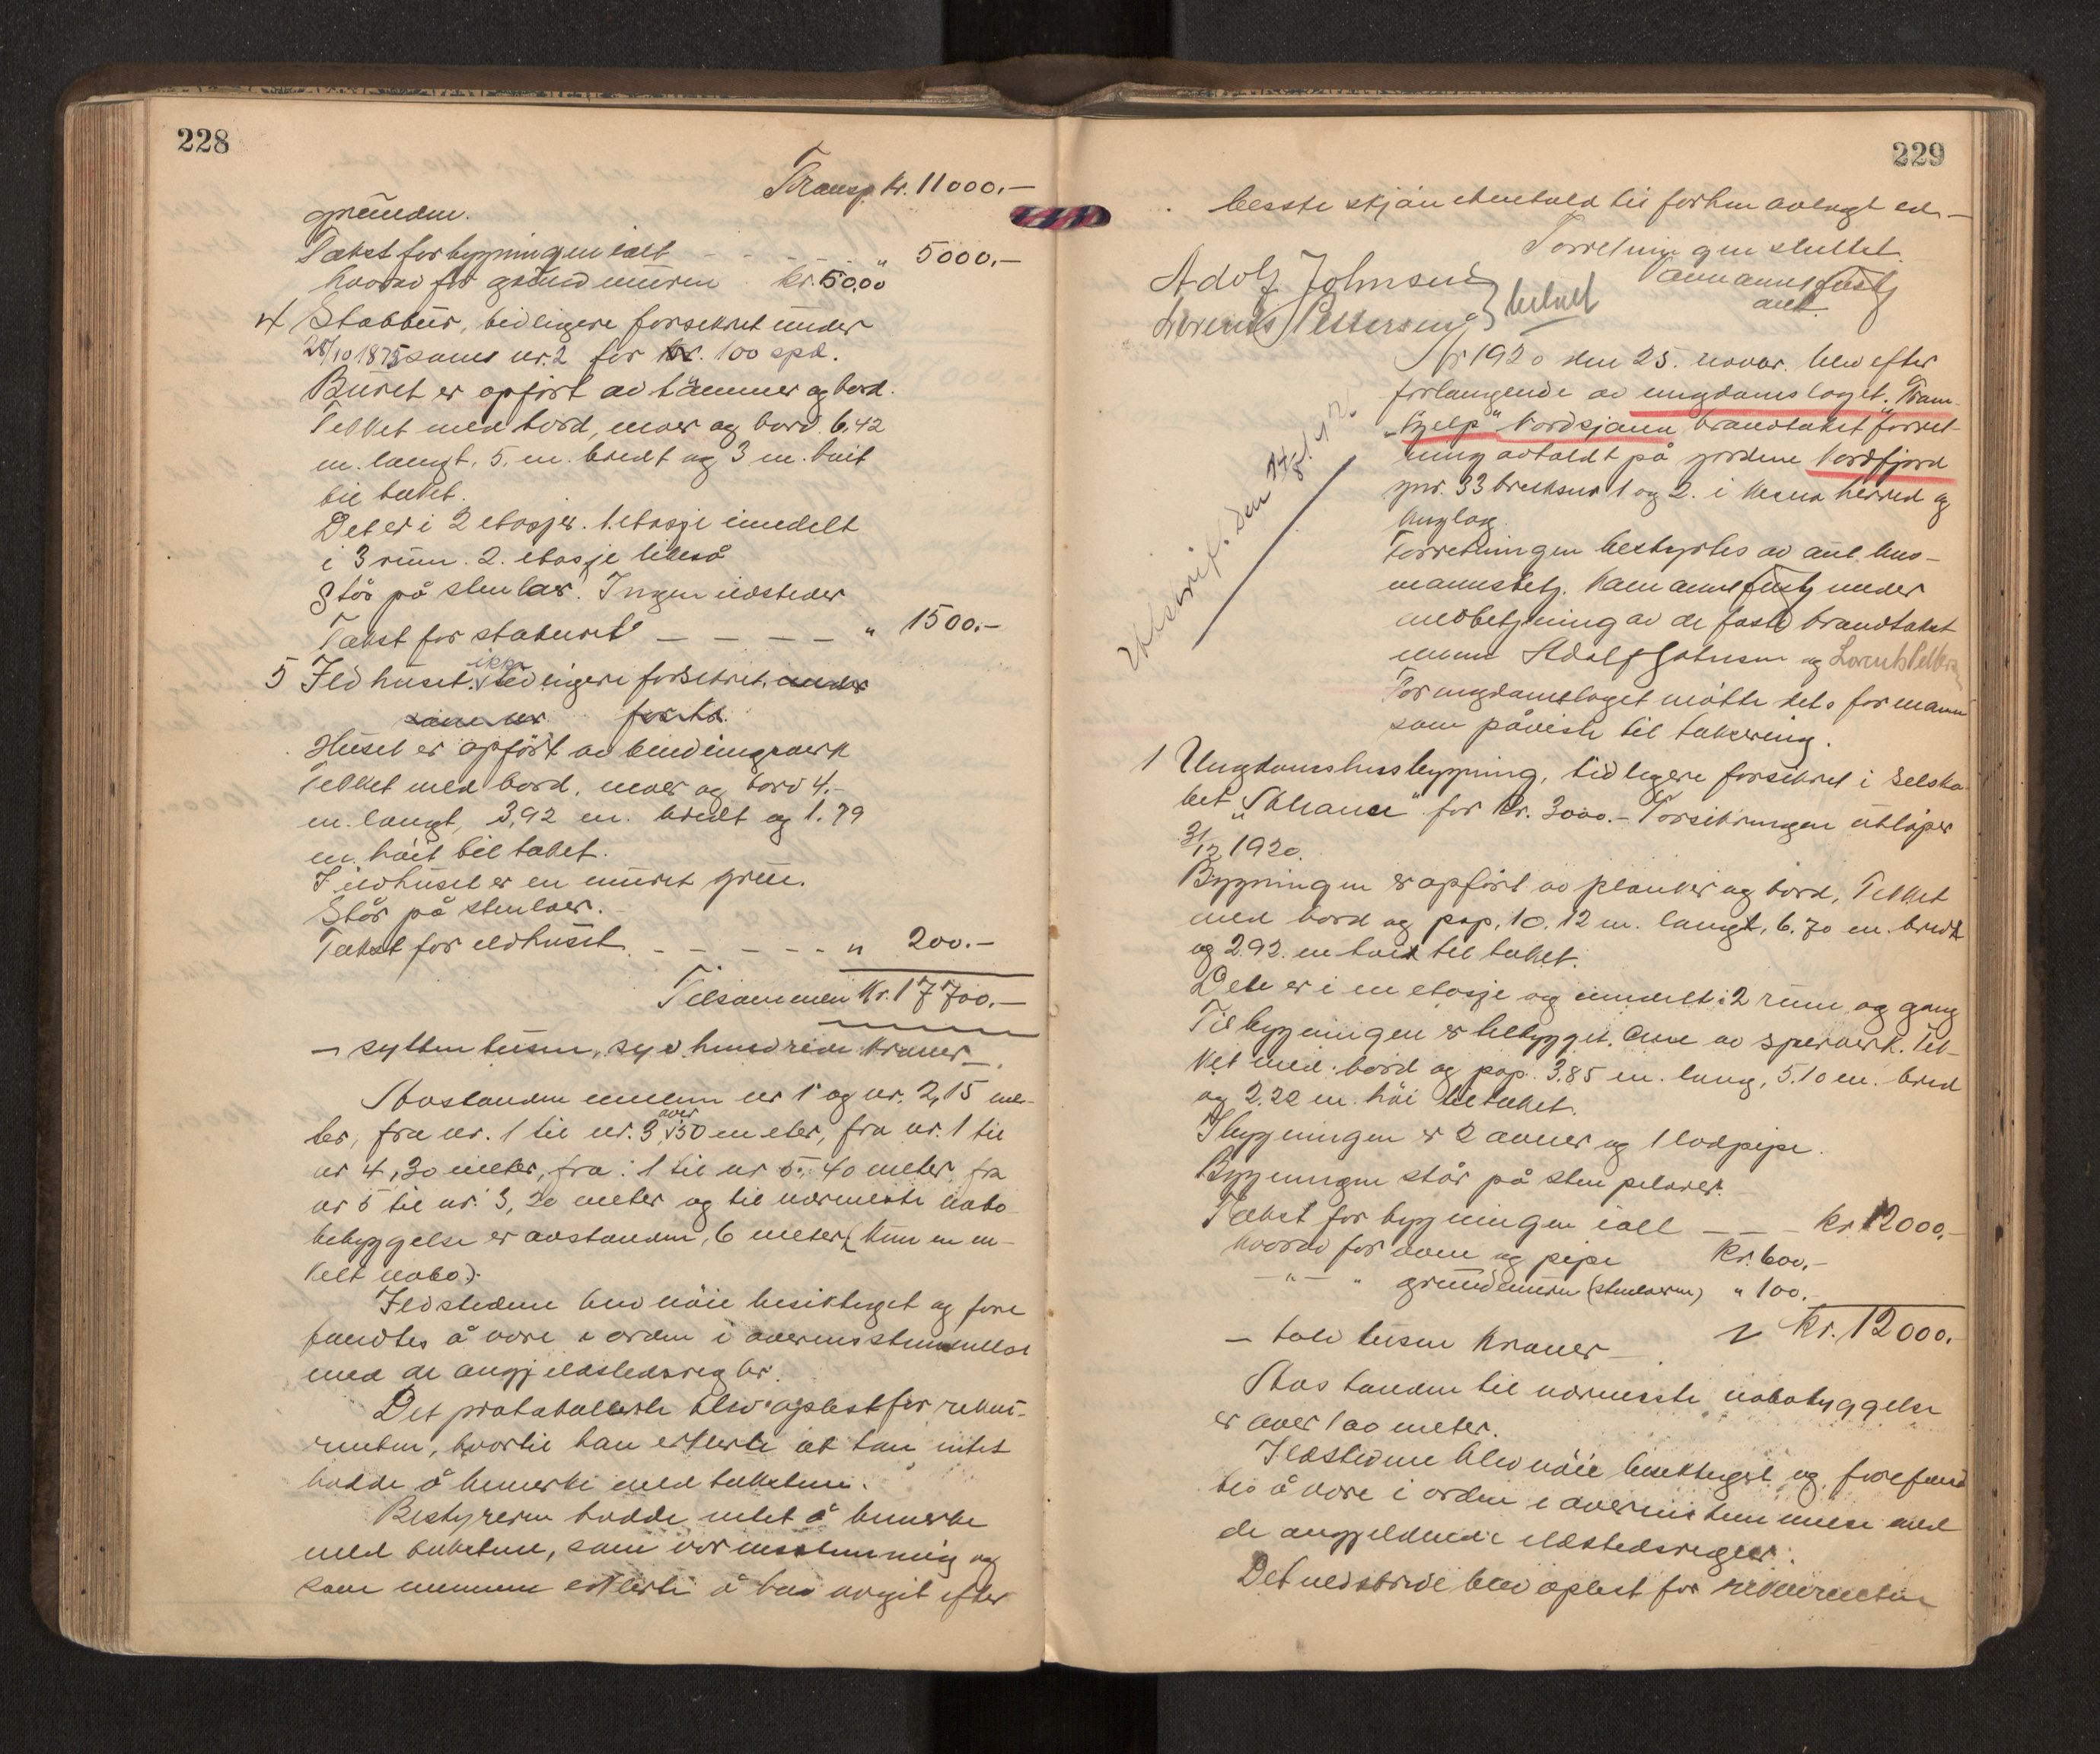 228
Transp. kr. 11000.-
grunden.
Takst for bygningen ialt - - - " 5000.-
hvorav for grundmuren kr. 50,00
4 Stabbur, tidligere forsikret under
25/10 1875 som nr. 2 for 100 spd.
Buret er opført av tømmer og bord.
Tekket med bord, never og bord 6,42
m. langt, 5. m. bredt og 3 m. høit
til taket.
Det er i 2 etasjer. 1 etasje inndelt
i 3 rum. 2. etasje likeså
Står på stenlar. Ingen ildsteder
Takst for staburet - - - - " 1500.-
5 Ildhuset. ikke tidligere forsikret under
som nr. for kr.
Huset er opført av bindingsverk
Tekket med bord, never og torv 4.-
m. langt, 3,92 m. bredt og 1.79
m. høit til taket.
I ildhuset er en muret grue.
Står på stenlaer.
Takst for ildhuset - - - - - " 200.-
Tilsammen kr. 17700.-
- sytten tusen, syv hundrede kroner -.
Avstanden mellem nr 1 og nr. 2, 15 me-
ter, fra nr. 1 til nr. 3, over 50 meter, fra nr. 1 til
nr 4, 30 meter, fra 1 til nr 5, 40 meter, fra
nr 5 til nr. 3, 20 meter og til nærmeste nabo
bebyggelse er avstanden, 6 meter (kun en en-
kelt nabo).
Ildstedene blev nøie besiktiget og fore
fandtes å være i orden i overensstemmelse
med de angj ildstedsregler.
Det protokollerte blev oplest for rekvi-
renten, hvortil han erklerte at han intet
hadde å bemerke med taksten.
Bestyreren hadde intet å bemerke
med taksten, som var enstemmig og
som mennene erklerte å ha avgit efter
229
beste skjøn i henhold til forhen avlagt ed. -
Forretningen sluttet.
Adolf Johnsen
Lorents Pettersen } betalt
År 1920 den 25. novbr. blev efter
forlangende av ungdomslaget "Fram-
"hjelp" Nordsjona brandtakst forret-
ning avholdt på gordene Nordfjord
gnr. 33 bruksnr 1 og 2. i Nesna herred og
tinglag
Forretningen bestyrtes av aut. lens-
mannsbetj. under
medbetjening av de faste brandtakst
menn Adolf Johnsen og Lorents Petters
For ungdomslaget møtte dets formann
som påviste til taksering.
Utskrift. den
1 Ungdomshusbygning, tidligere forsikret i selska-
bet "Skana" for kr. 3000.- Forsikringen utløper
31/12 1920.
Bygningen er opført av planker og bord, Tekket
med bord og pap, 10.12 m. langt, 6.70 m. bredt
og 2.92. m høit til taket.
Dette er i en etasje og inndelt i 2 rum og gang
Til bygningen er tilbygget av sperverk. Tek-
ket med bord og pap. 3.85 m. lang, 5.10 m. bred
og 2.22 m. høi til taket.
I bygningen er 2 ovner og 1 lodpipe.
Bygningen står på sten pelarer.
Takst for bygningen ialt - - - kr. 12000.-
hvorav for ovn og pipe kr. 600.-
- " - " grundmuren (stenlaerne) " 100.-
- tolv tusen kroner - kr. 12000.
Avstanden til nærmeste nabobyggelse
er over 100 meter.
Ildstedene blev nøie besiktiget og forefand
tes å være i orden i overenstemmelse med
de angjeldende ildstedsregler.
Det nedskrevne blev oplest for rekvirenten